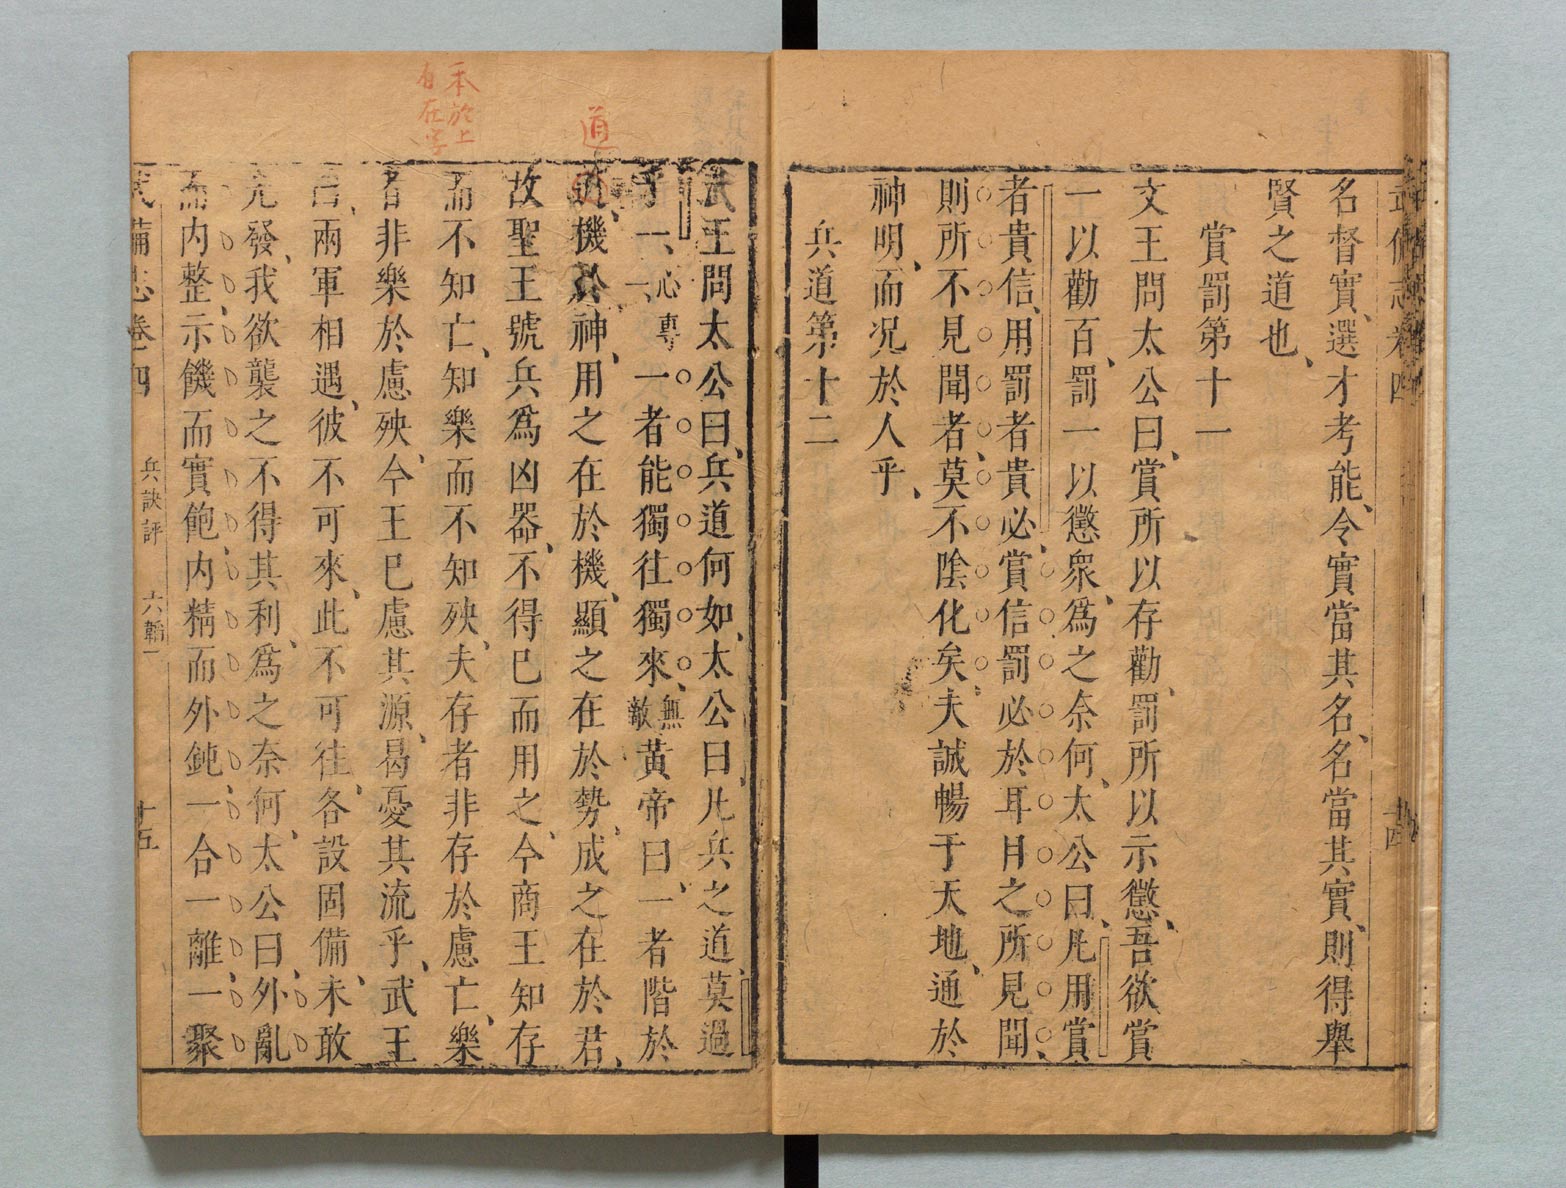 武備志卷四
十四
名督實選才考能令實當其名名當其實則得舉
賢之道也
賞罰第十一
文王問太公曰賞所以存勸罰所以示懲吾欲賞
一以勸百罰一以懲衆爲之奈何太公曰凡用賞
者貴信用罰者貴必賞信罰必於耳目之所見聞
則所不見聞者莫不陰化矣夫誠暢于天地通於
神明而况於人乎
兵道第十二
武王問太公曰兵道何如太公曰凡兵之道莫過
乎一心專一一者能獨往獨來無敵黃帝曰一者階於
道
道機於神用之在於機顯之在於勢成之在於君
故聖王號兵爲凶器不得已而用之今商王知存
一本於上
有在字
而不知亡知樂而不知殃夫存者非存於慮亡樂
者非樂於慮殃今王已慮其源曷憂其流乎武王
曰兩軍相遇彼不可來此不可往各設固備未敢
先發我欲襲之不得其利爲之奈何太公曰外亂
而內整示饑而實飽內精而外鈍一合一離一聚
武備志卷四 兵訣評 六韜一 十五